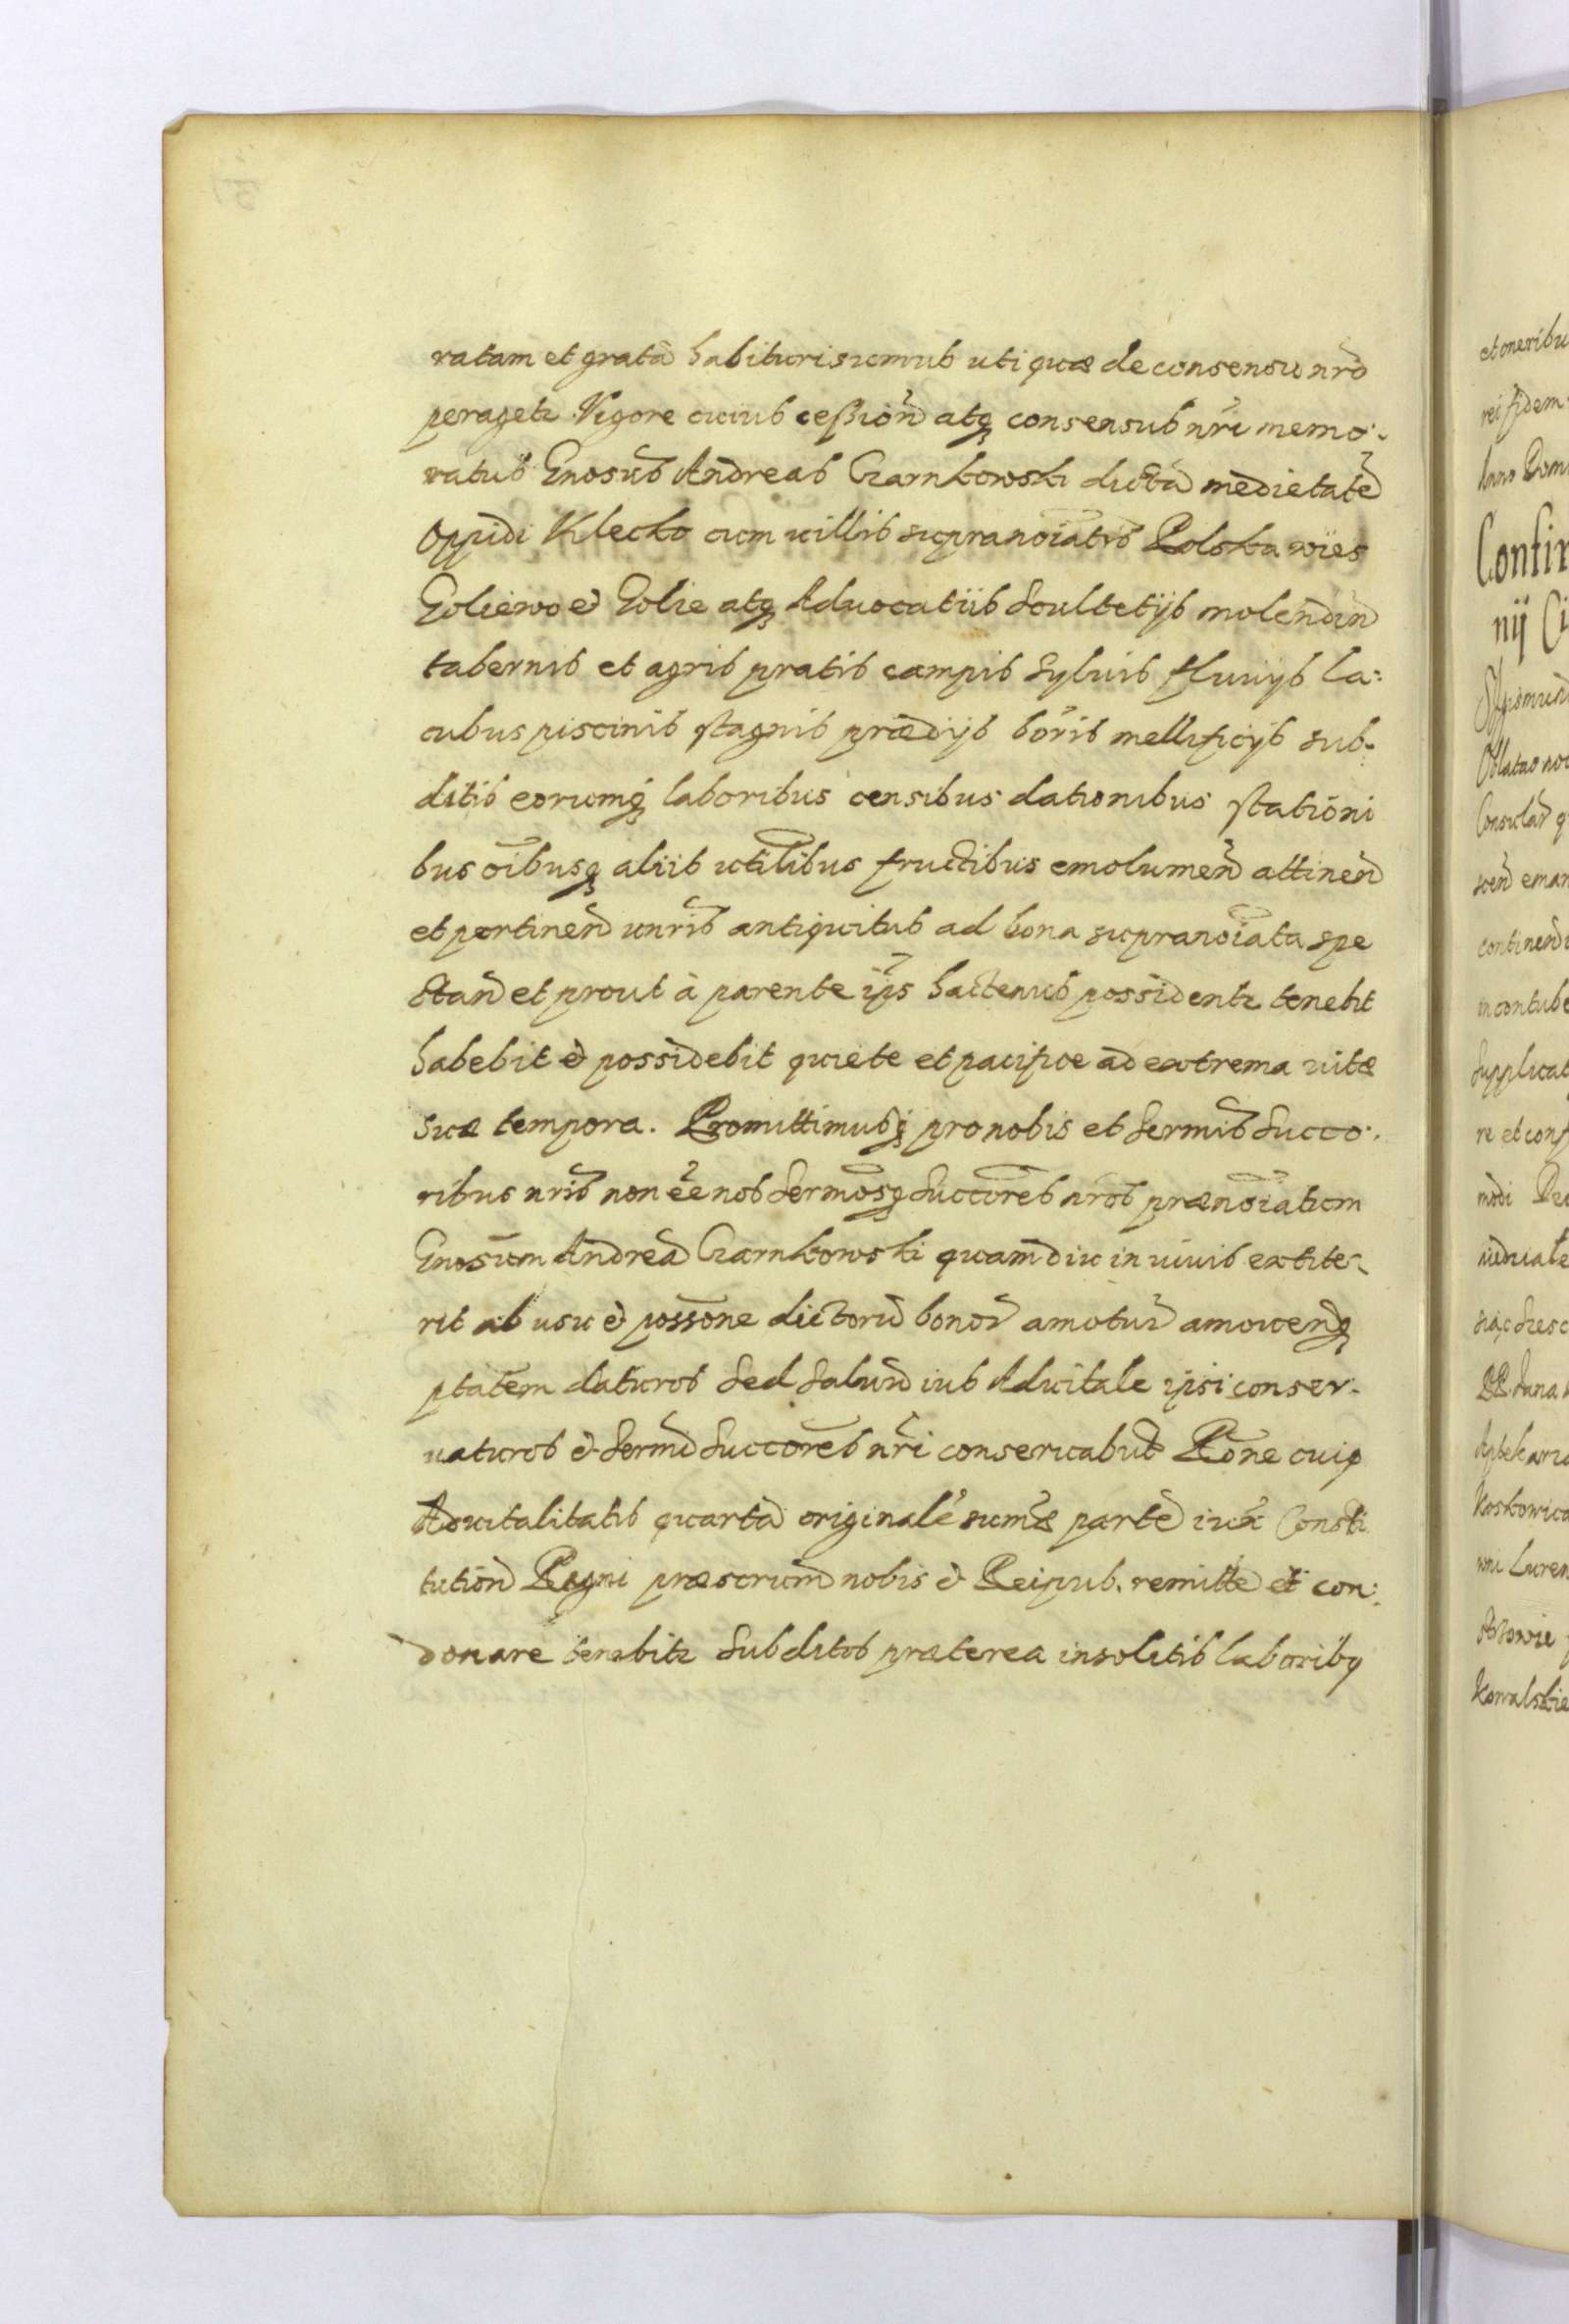 ratam et gratã habituri sumus uti quæ de consensu nr̃o
peragetr Vigore cuius ceßion̄ atq; consensus nr̃i memo-
ratus Gnosus Andreas Czarnkowski dictã medietatẽ
oppidi Klecko cum villis supranoiatis Polska wies
Goliewo et Golie atq; Aduocatiis Scultetijs molendin̄
tabernis et agris pratis campis syluis fluuijs la-
cubus piscinis stagnis prædijs boris mellificijs sub-
ditis eorumq; laboribus censibus dationibus stationi
bus oibusq; aliis utilibus fructibus emolumen̄ attinen̄
et pertinen̄ unris antiquitus ad bona supranoiata spe
ctan̄ et prout à parente ips hactenus possidentr tenebit
habebit et possidebit quiete et pacifice ad extrema uitæ
suæ tempora. Promittimusq; pro nobis et Sermis Succo-
ribus nris non ẽe nos Sermosq; Succores nros prænoiatum
Gnosum Andreã Czarnkowski quamdiu in uiuis extite-
rit ab usu et possone dictorũ bonor amotur amouendq;
ptatem daturos sed saluũ ius Aduitale ipsi conser-
uaturos et Sermi Succores nri conseruabut Rone cuiq
Aduitalitatis quartã originalẽ sumæ partẽ iux Consti
tution̄ Regni præscrium nobis et Reipub. remitte et con-
donare tenebitr subditos præterea insolitis laboribq

et oneribu
rei fidem
Anno Dom
Confir
nij Ci
Sigismund
Oblatas no
Consular q
scen̄ eman
continen̄
in contube
supplicat
re et conf
modi
PP. Jana
Aptekarza
Koskowica
Kowalskie